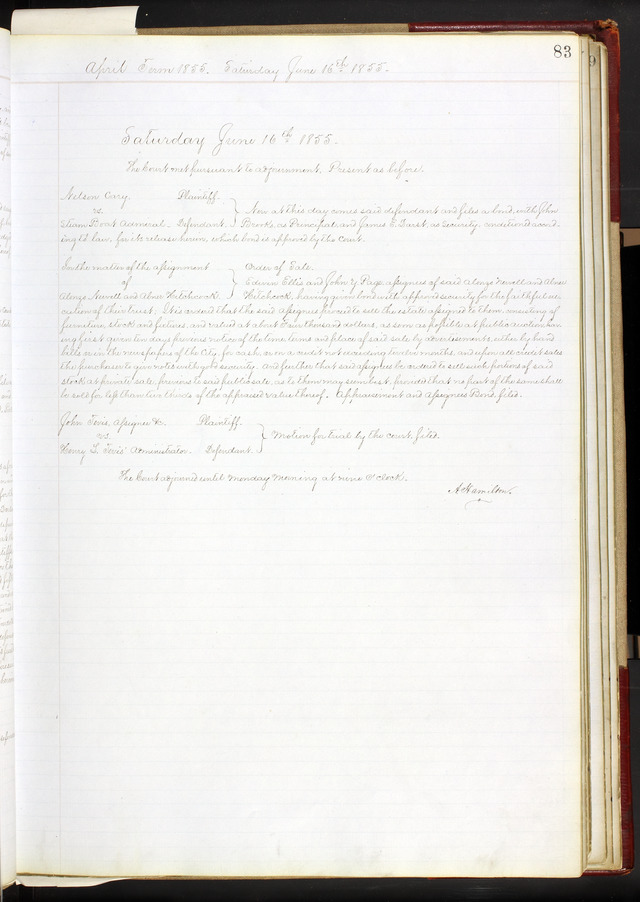 83
April Term 1855. Saturday June 16th 1855.
Saturday June 16th 1855.
The Court met pursuant to adjournment. Present as before.
Nelson Cary. Plaintiff.
vs.
Steam Boat Admiral. Defendant.
Now at this day comes said defendant and files a bond, with John
Brooks as Principal and James E. as security conditioned accord-
ing to law. for its release herein, which bond is approved by the Court.
In the matter of the assignment
of
Alonzo Newell and Abner Hitchcock.
Order of Sale.
Edwin Ellis and John Y. Page assignees of said Alonzo Newell and Abner
Hitchcock, having given bond with approved security for the faithful exe-
cution of their trust; It is ordered that the said assignees proceed to sell the estate assigned to them, consisting of
furniture, stock and fixtures, and valued at about Four thousand dollars, as soon as possible at public auction, hav-
ing first given ten days previous notice of the time, terms and place of said sale by advertisements, either by hand
bills or in the newspapers of the City, for cash, or on a credit not exceeding twelve months, and upon all credit sales
the purchasers to give notes with good security. And further that said assignees be ordered to sell such portions of said
stock at private sale, previous to said public sale, as to them may seem best, provided that no part of the same shall
be sold for less than two thirds of the appraised value thereof. Appraisement and Assignees Bond filed.
John Tevis, Assignee &c. Plaintiff.
vs.
Henry L. Tevis' Administrator. Defendant.
Motion for trial by the court filed.
The Court adjourned until Monday morning at nine O'clock.
A. Hamilton.
9